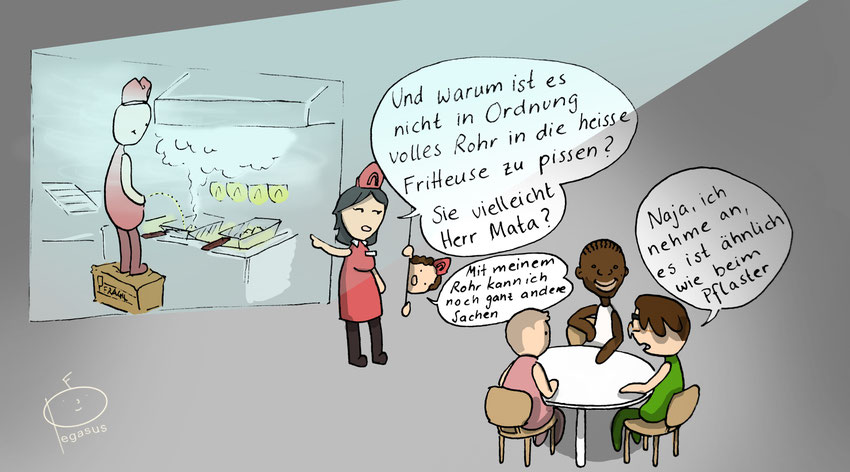 Und warum ist es
nicht in Ordnung
volles Rohr in die heisse
Fritteuse zu pissen?
Sie vielleicht
Herr Mata?
Mit meinem
Rohr kann ich
noch ganz andere
Sachen
Naja, ich
nehme an,
es ist ähnlich
wie beim
Pflaster
FRAGIL
F
Pegasus